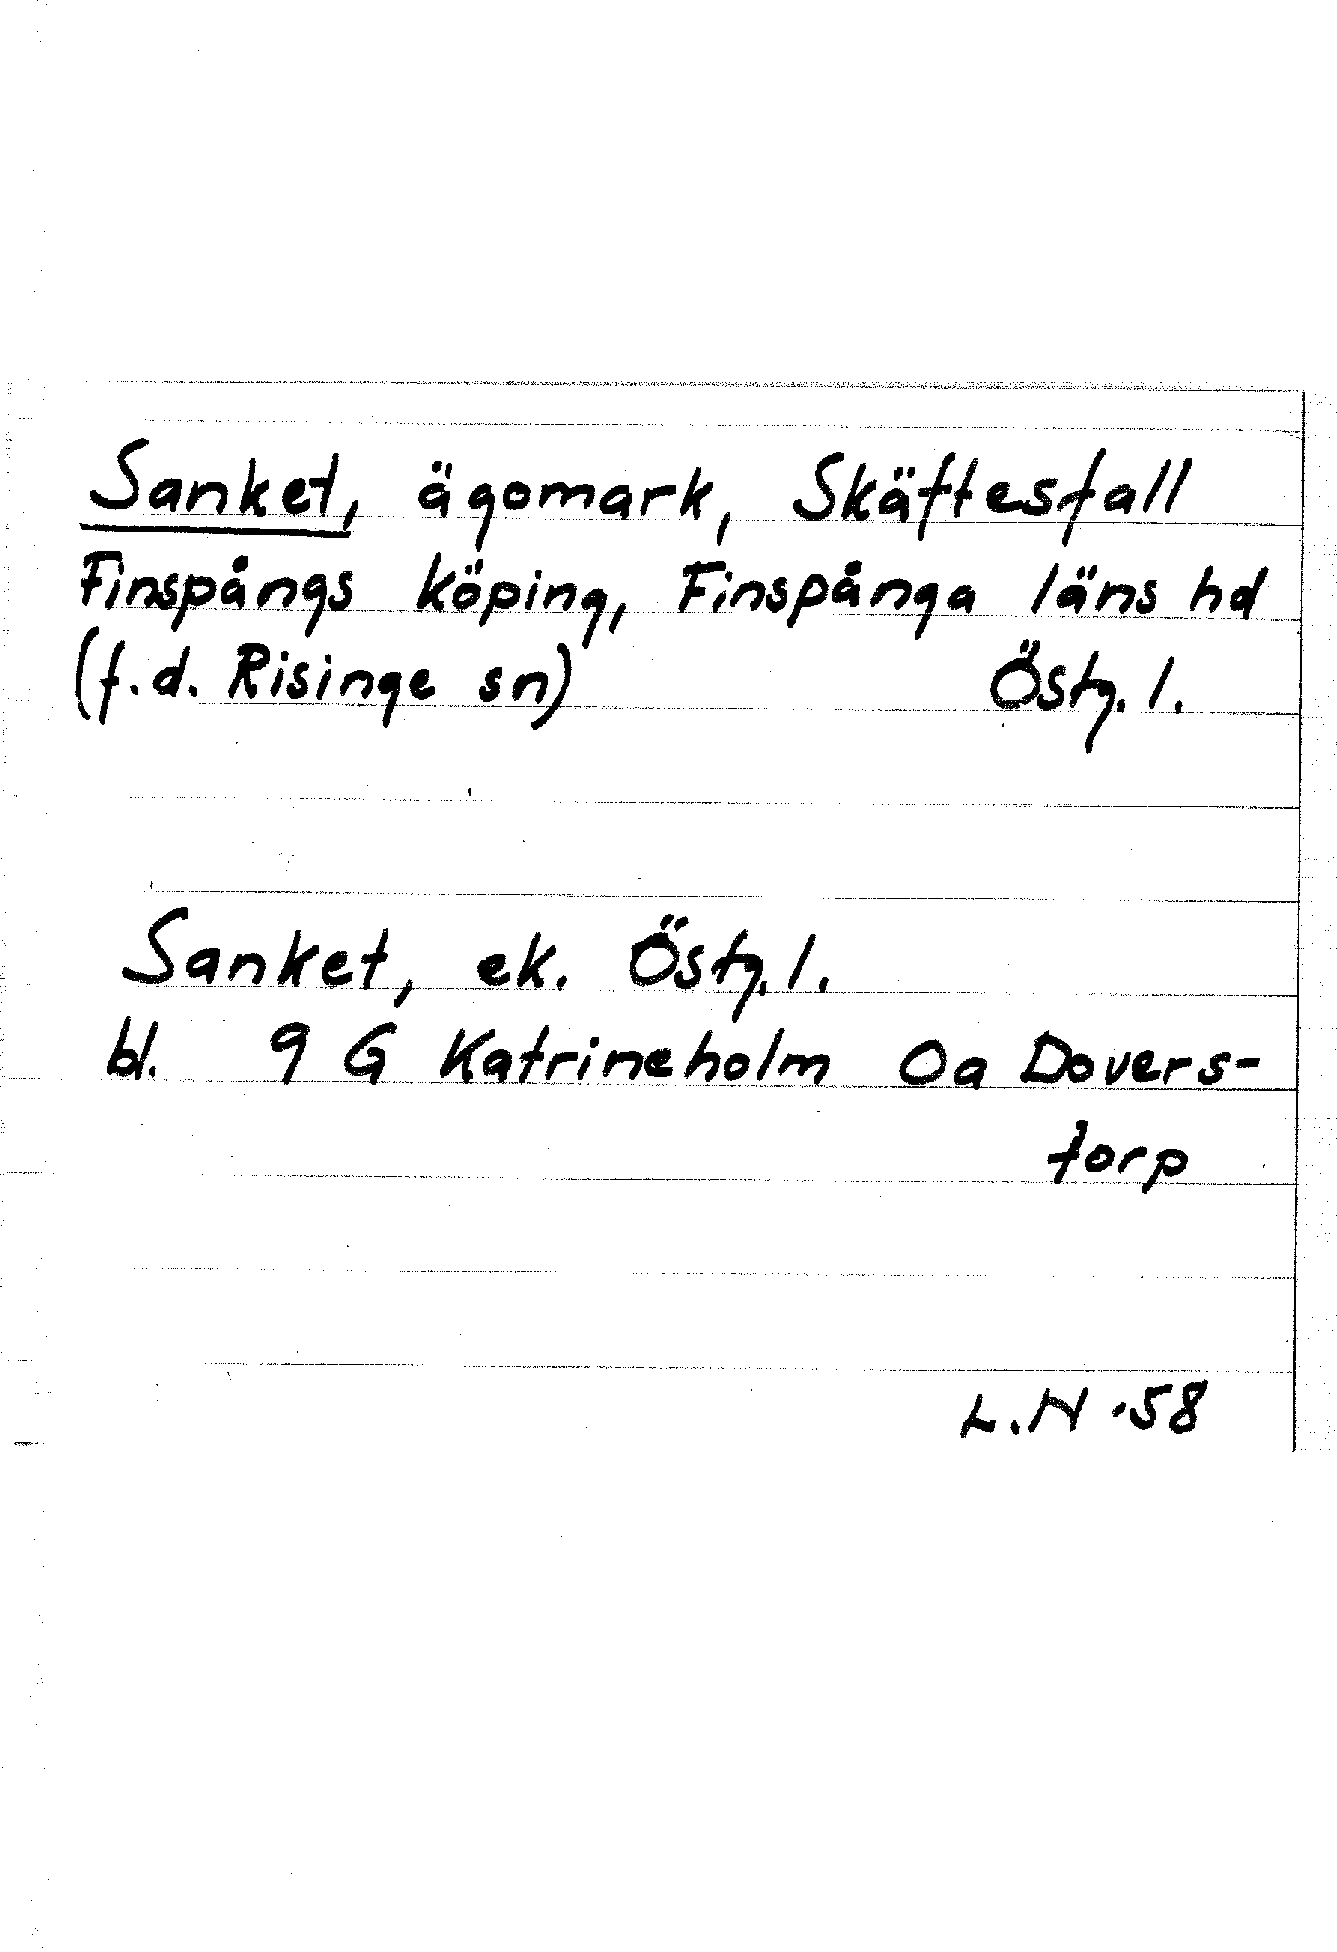 Sanket, ägomark, Skäftesfall
Finspångs köping, Finspånga läns hd
(f.d. Risinge sn) Östg. l.
Sanket, ek. Östg. l.
bl. 9 G Katrineholm Oa Dovers-
torp
L.H -58